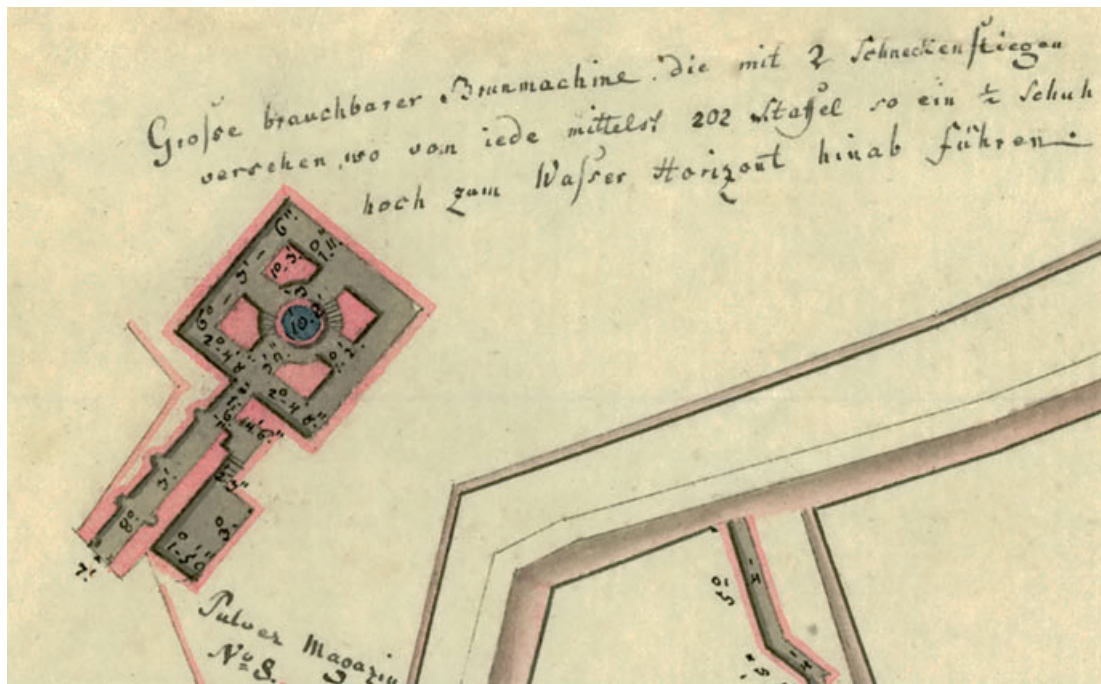 Große brauchbarer Brunmachine die mit 2 Schneckenstiegen
versehen, wo von iede mittelst 202 Staffel so ein ½ Schuh
hoch zum Waßer Horizont hinab führen
6°-3'-6"
10.3'
10.
2°.4'.8"
2°.4.8"
14'6"
3'
8°
7'
3°
Pulver Magazin
Nº 8.